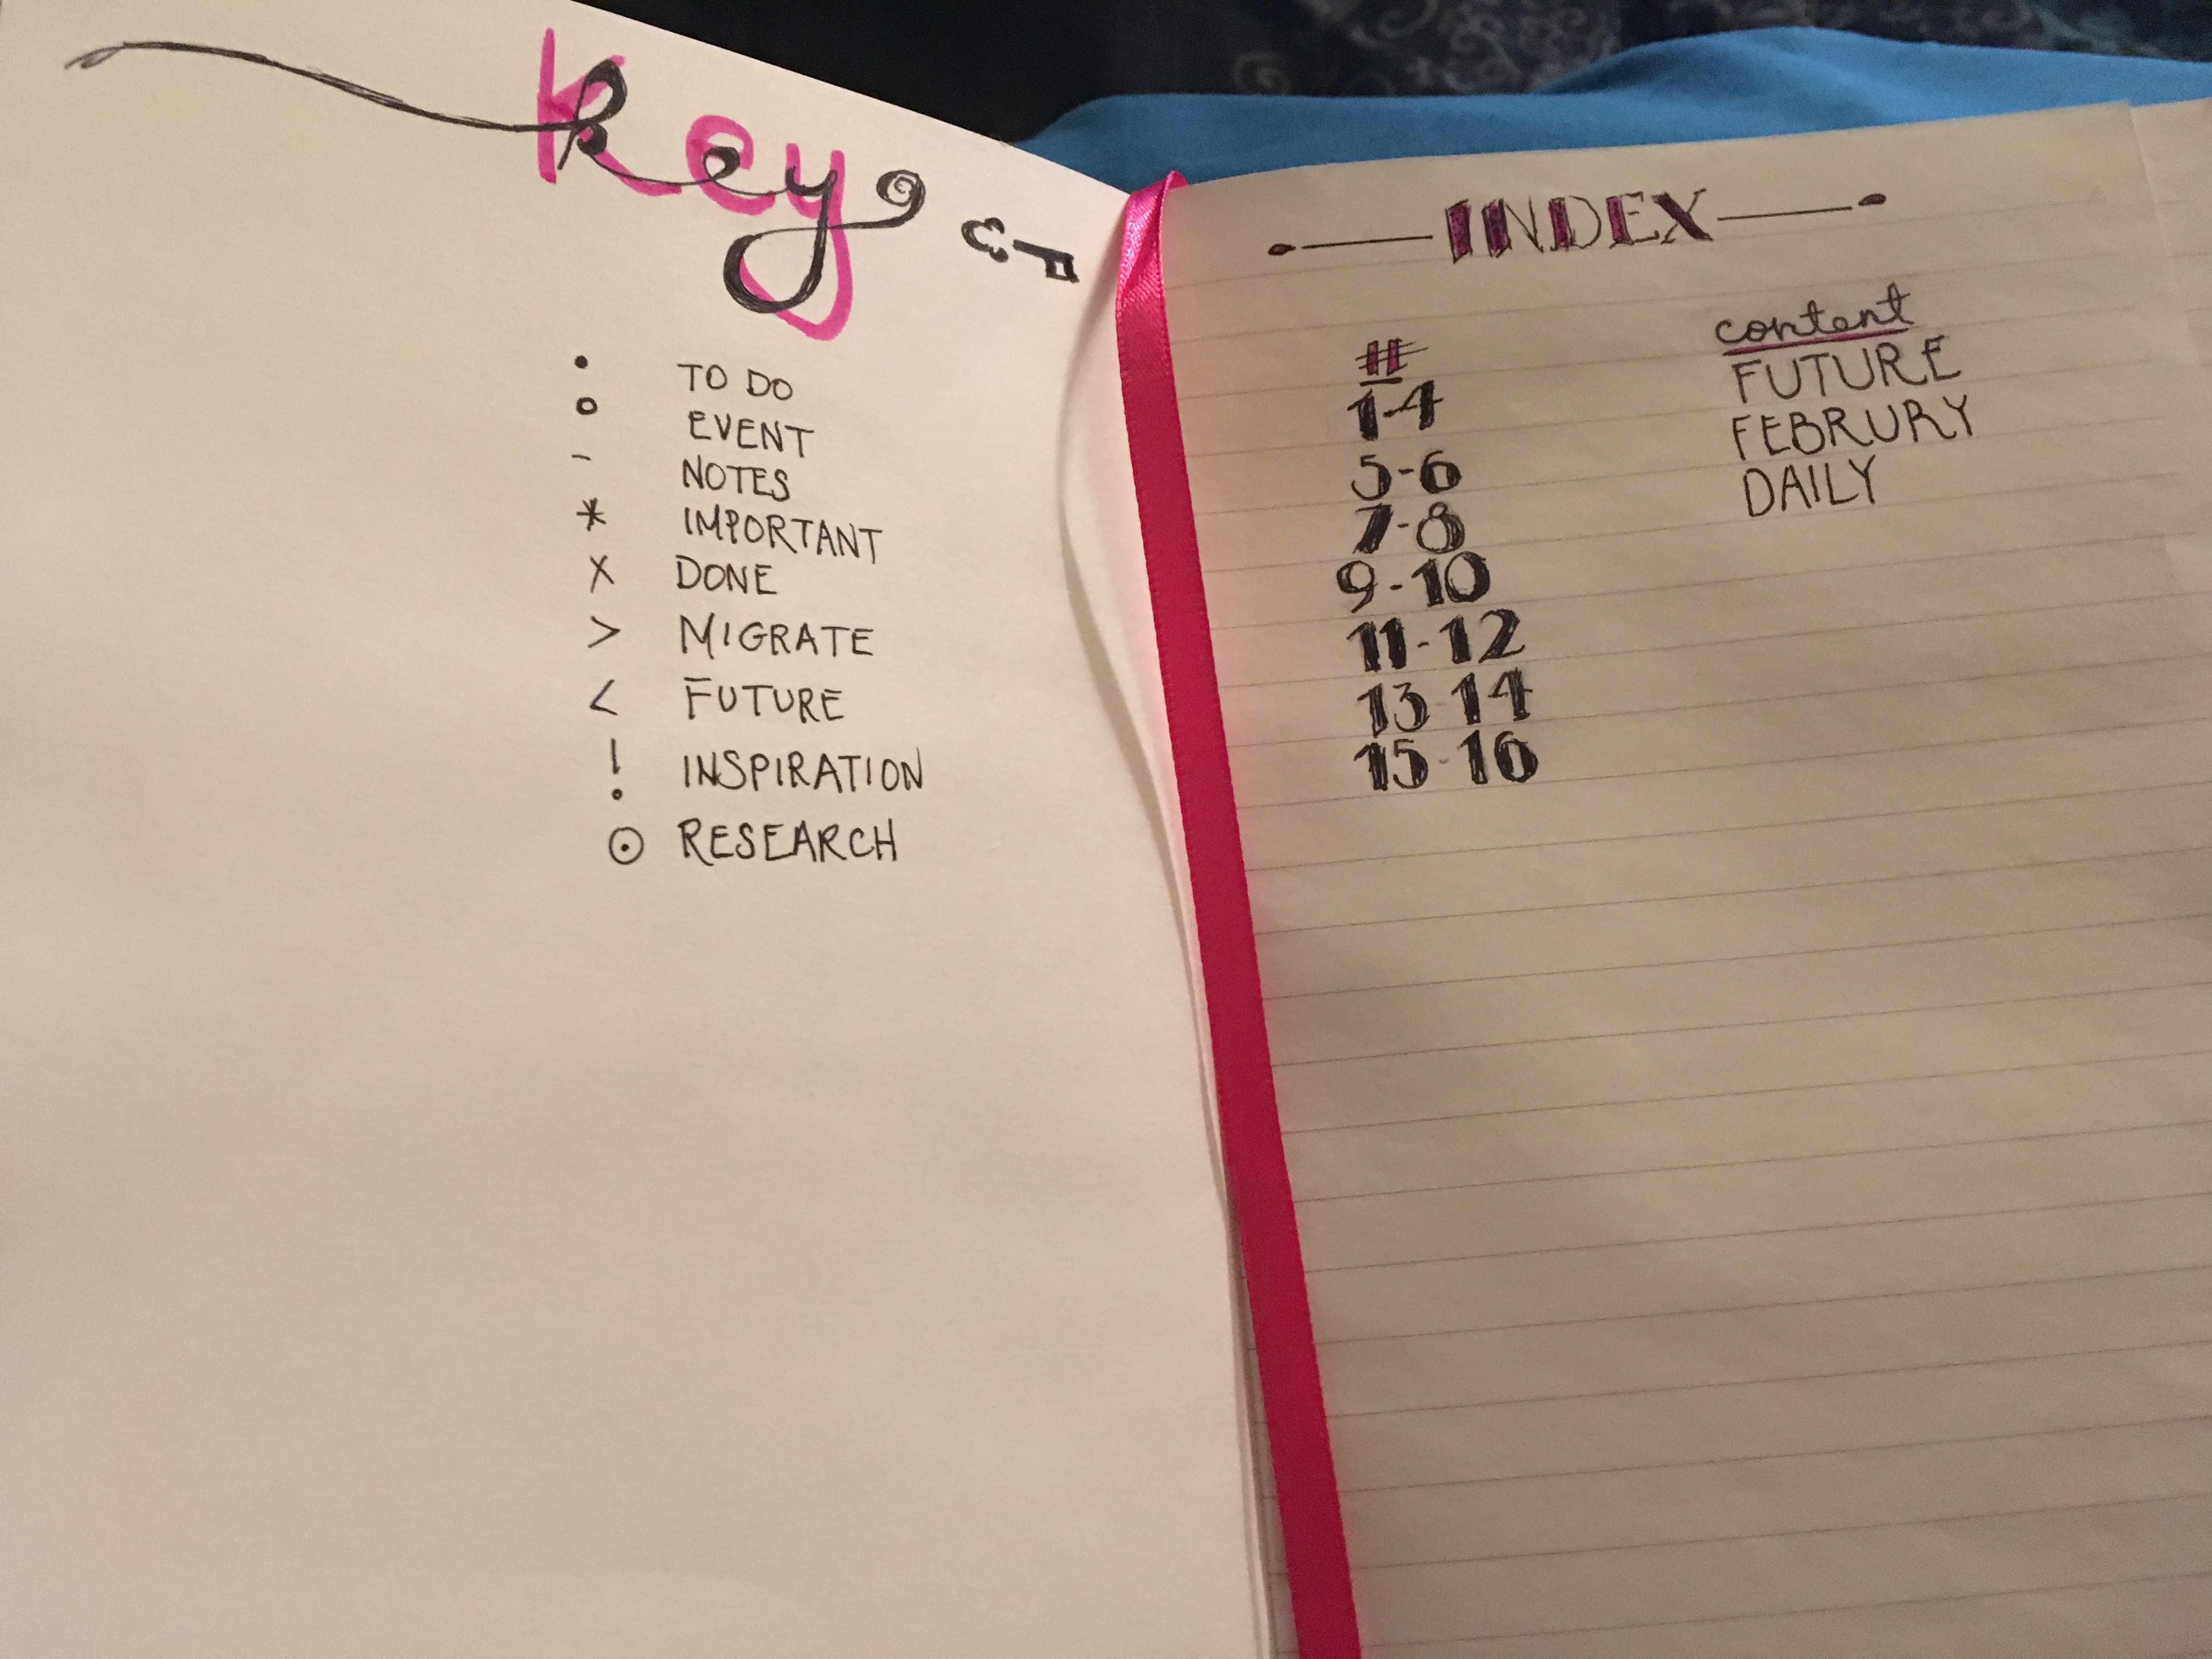 key
• TO DO
o EVENT
- NOTES
* IMPORTANT
X DONE
> MIGRATE
< FUTURE
! INSPIRATION
⊙ RESEARCH
INDEX
# content
1-4 FUTURE
5-6 FEBRURY
7-8 DAILY
9-10
11-12
13-14
15-16